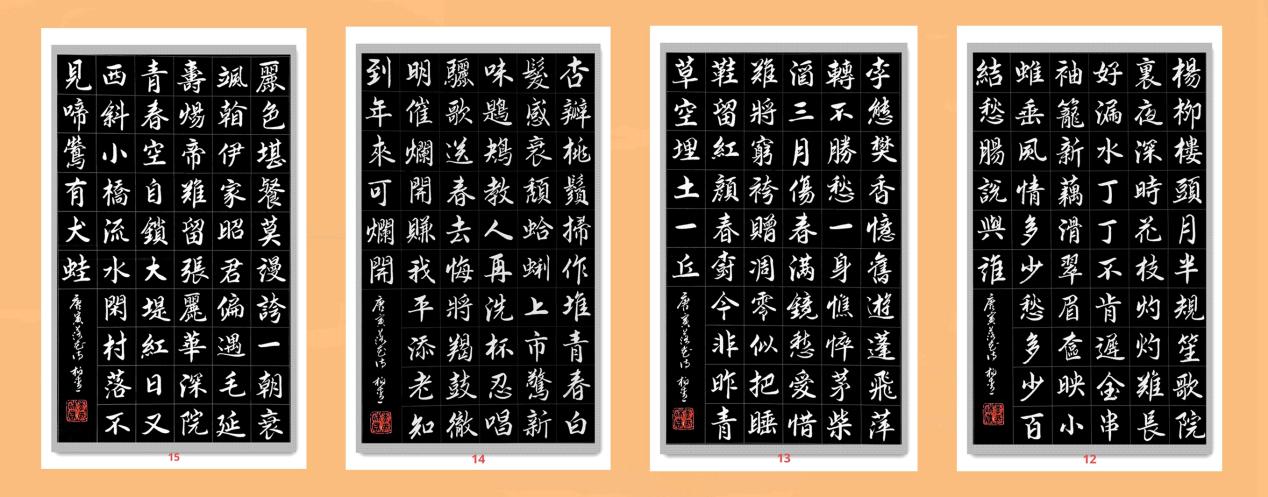 楊柳樓頭月半規笙歌院
裏夜深時花枝灼灼難長
好漏水丁丁不肯遲金串
袖籠新藕滑翠眉奩映小
蛾垂風情多少愁多少百
結愁腸說與誰
唐寅落花詩
12
李態樊香憶舊遊蓬飛萍
轉不勝愁一身憔悴茅柴
酒三月傷春滿鏡愁愛惜
難將窮袴贈凋零似把睡
鞋留紅顏春樹今非昨青
草空埋土一丘
唐寅落花詩
13
杏瓣桃鬚掃作堆青春白
髮感衰頹蛤蜊上市驚新
味鶗鴂教人再洗杯忍唱
驪歌送春去悔將羯鼓徹
明催爛開賺我平添老知
到年來可爛開
唐寅落花詩
14
麗色堪餐莫謾誇一朝衰
颯斡伊家昭君偏遇毛延
壽煬帝難留張麗華深院
青春空自鎖大堤紅日又
西斜小橋流水閑村落不
見啼鶯有犬蛙
唐寅落花詩
15